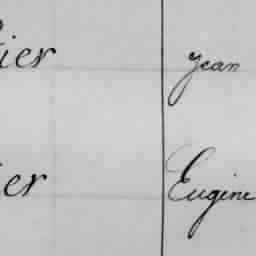 ier Jean
ier Eugine